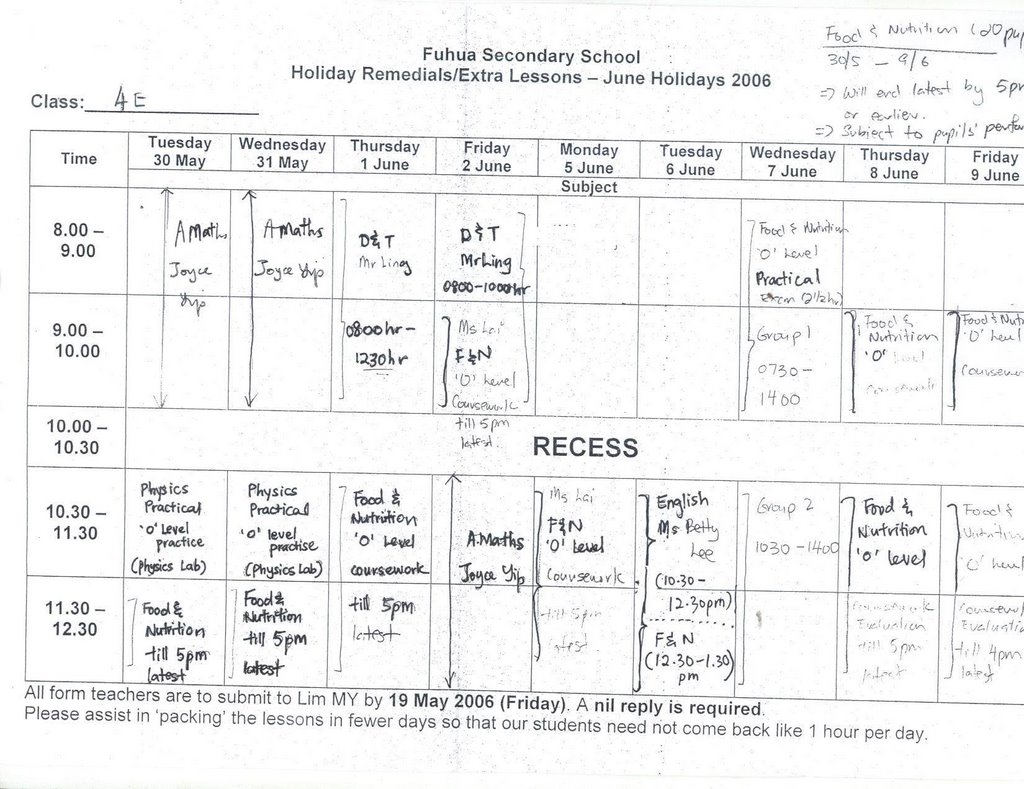 Food & Nutrition (20 pup
30/5 – 9/6
=> Will end latest by 5pm
or earlier.
=> Subject to pupils' perfor
Fuhua Secondary School
Holiday Remedials/Extra Lessons – June Holidays 2006
Class: 4E
Time
Tuesday
30 May
Wednesday
31 May
Thursday
1 June
Friday
2 June
Monday
5 June
Tuesday
6 June
Wednesday
7 June
Thursday
8 June
Friday
9 June
Subject
8.00 –
9.00
A Maths
Joyce
Yip
A Maths
Joyce Yip
D&T
Mr Ling
D&T
Mr Ling
0800-1000hr
Food & Nutrition
'O' Level
Practical
Exam (2½hr)
9.00 –
10.00
0800hr-
1230hr
Ms Lai
F&N
'O' Level
Coursework
till 5pm
latest.
Group 1
0730 –
1400
Food &
Nutrition
'O' Level
Coursework
Food & Nutri
'O' Level
Coursewor
10.00 –
10.30
RECESS
10.30 –
11.30
Physics
Practical
'O' Level
practice
(Physics Lab)
Physics
Practical
'O' level
practise
(Physics Lab)
Food &
Nutrition
'O' Level
coursework
A.Maths
Joyce Yip
Ms Lai
F&N
'O' Level
Coursework
English
Ms Betty
Lee
(10.30-
Group 2
1030 – 1400
Food &
Nutrition
'O' level
Food &
Nutrition
'O' Level
11.30 –
12.30
Food &
Nutrition
till 5pm
latest
Food &
Nutrition
till 5pm
latest
till 5pm
latest
till 5pm
latest
12.30pm)
F&N
(12.30-1.30)
pm
Coursework
Evaluation
till 5pm
latest
Coursewor
Evaluatio
till 4pm
latest
All form teachers are to submit to Lim MY by 19 May 2006 (Friday). A nil reply is required.
Please assist in 'packing' the lessons in fewer days so that our students need not come back like 1 hour per day.